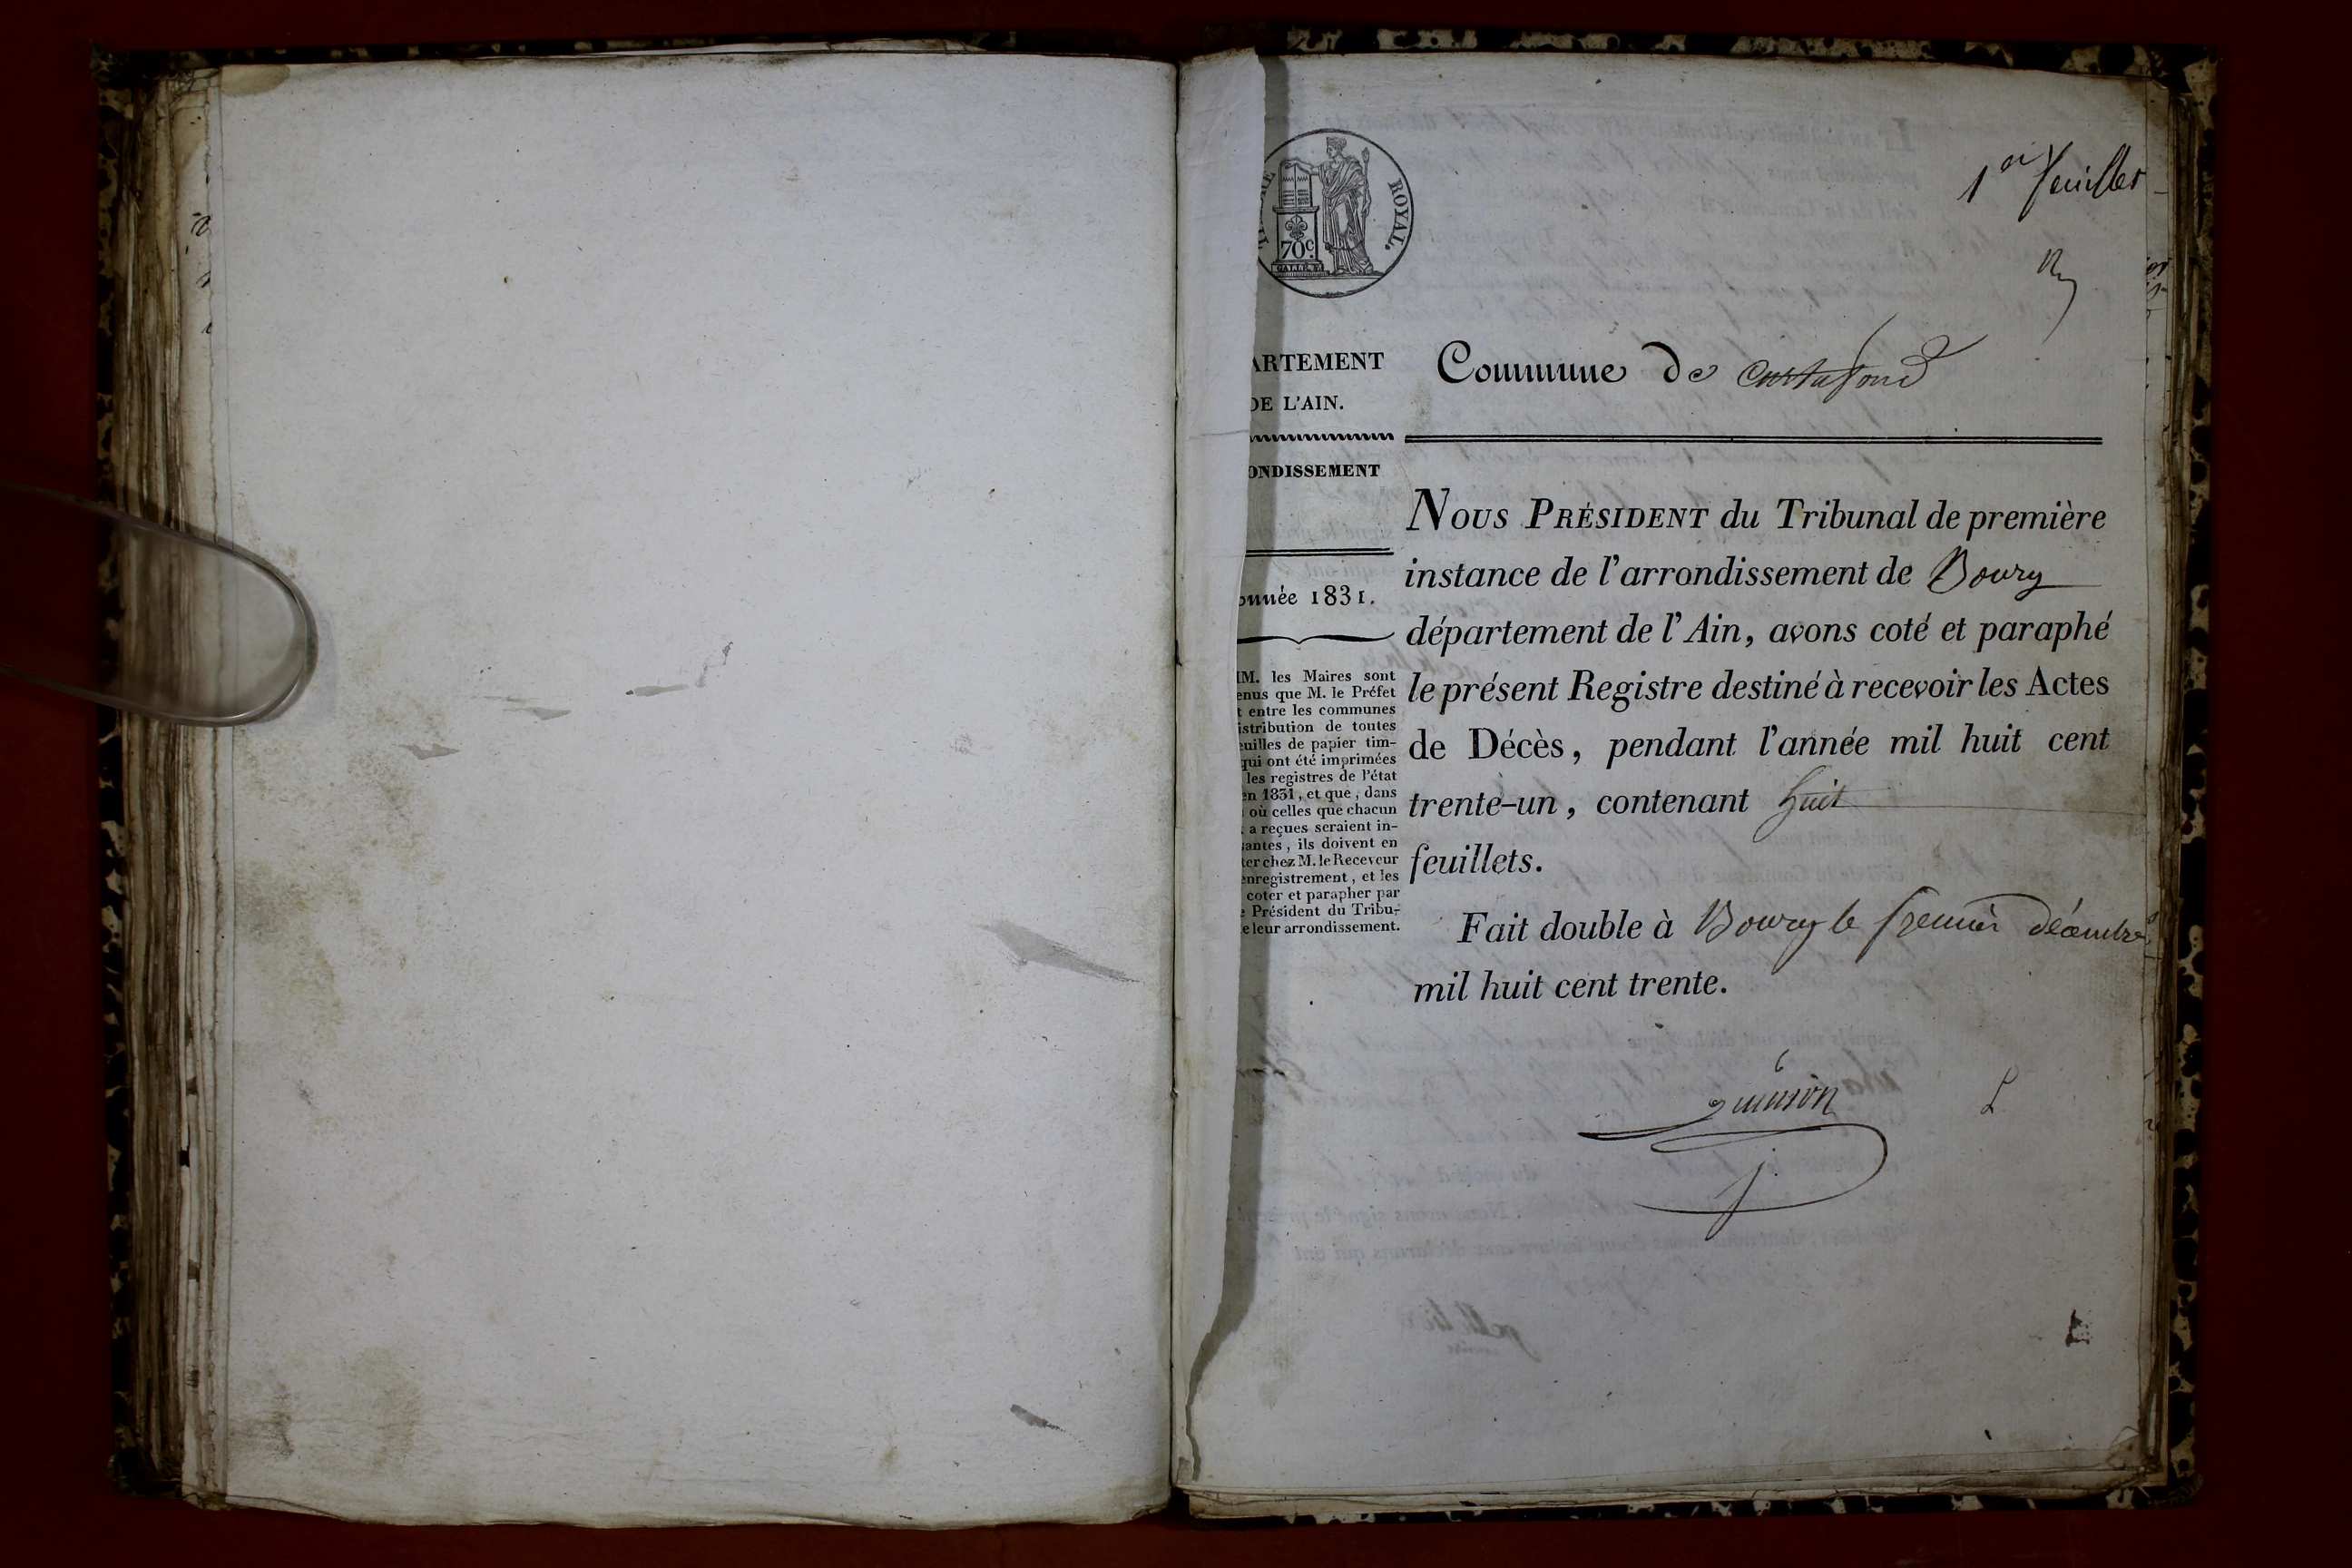 1er feuillet
ROYAL.
70c.
ARTEMENT
DE L'AIN.
ONDISSEMENT
onnée 1831.
IM. les Maires sont
enus que M. le Préfet
t entre les communes
istribution de toutes
euilles de papier tim-
qui ont été imprimées
les registres de l'état
en 1831, et que, dans
où celles que chacun
a reçues seraient in-
santes, ils doivent en
ter chez M. le Receveur
enregistrement, et les
coter et parapher par
e Président du Tribu-
e leur arrondissement.
Commune de Curtafond
NOUS PRÉSIDENT du Tribunal de première
instance de l'arrondissement de Bourg
département de l'Ain, avons coté et paraphé
le présent Registre destiné à recevoir les Actes
de Décès, pendant l'année mil huit cent
trente-un, contenant huit
feuillets.
Fait double à Bourg le premier décembre
mil huit cent trente.